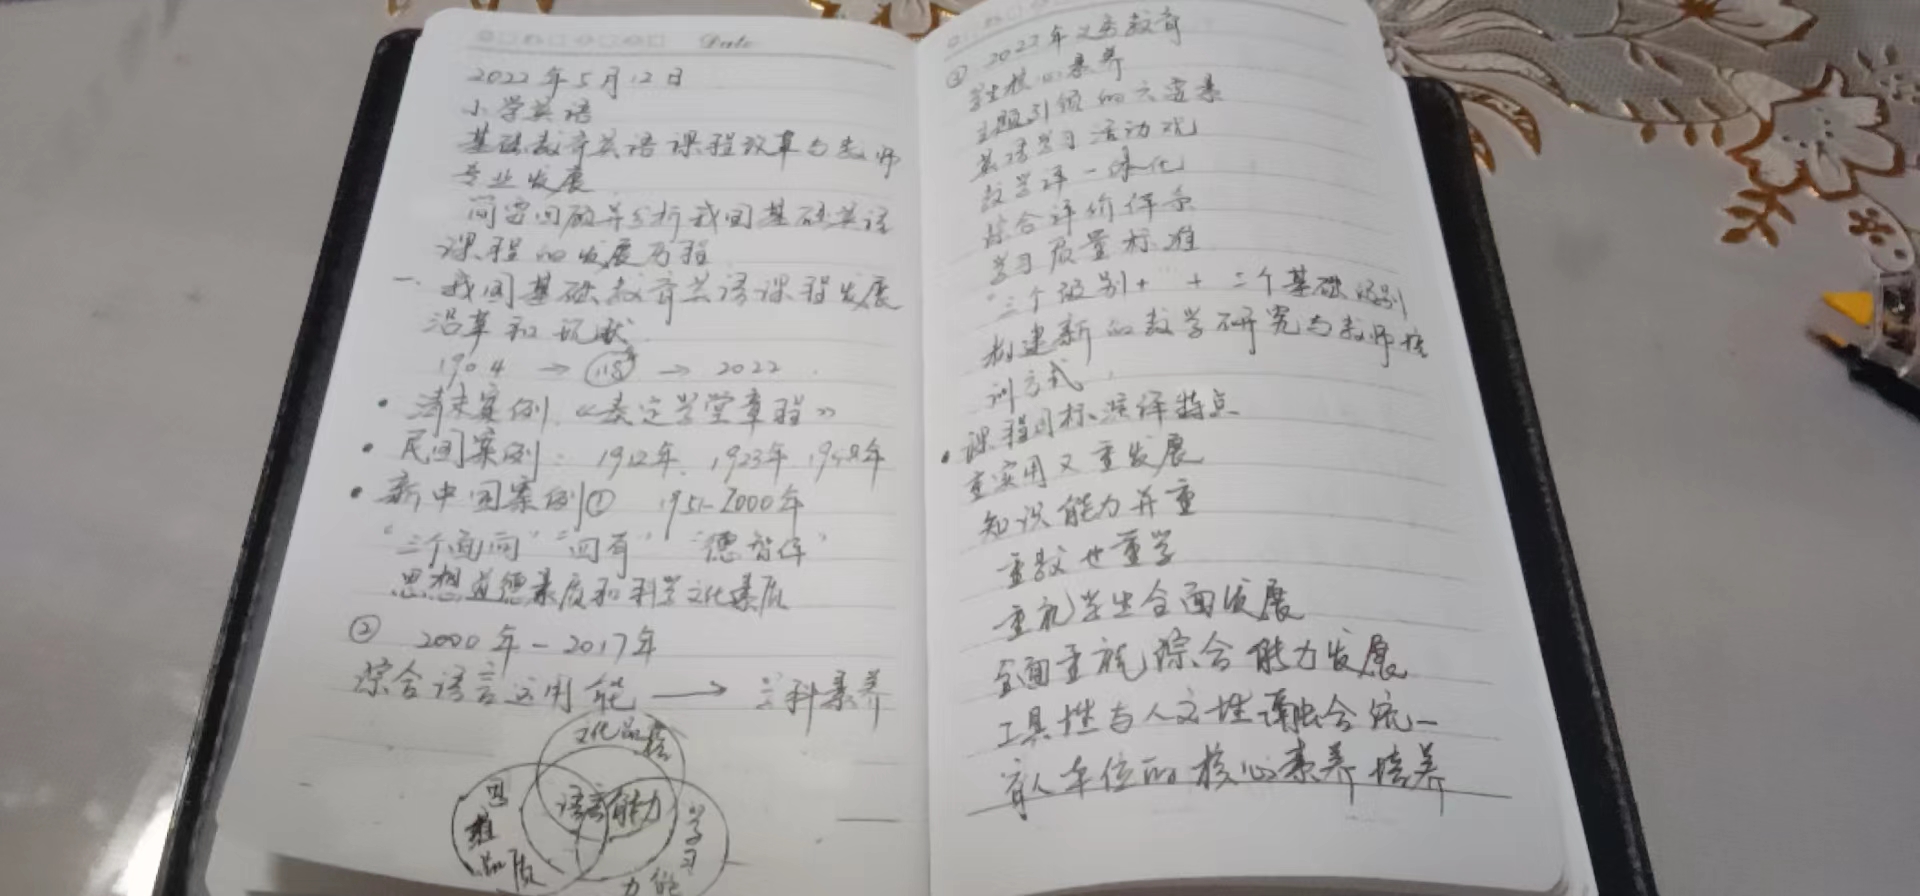 Date
2022年5月12日
小学英语
基础教育英语课程改革与教师
专业发展
简要回顾并分析我国基础英语
课程的发展历程
一. 我国基础教育英语课程发展
沿革和现状
1904 → 118年 → 2022
• 清末案例《奏定学堂章程》
• 民国案例: 1912年、1923年 1948年
• 新中国案例① 1951-2000年
“三个面向”“四有”“德智体”
思想道德素质和科学文化素质
② 2000年-2017年
综合语言运用能 → 学科素养
文化品格
语言能力
思维品质
学习
力能
③ 2022年义务教育
学生核心素养
主题引领的六要素
英语学习活动观
教学评一体化
综合评价体系
学习质量标准
“三个级别+ + 三个基础级别
构建新的教学研究与教师培
训方式
• 课程目标演绎特点
重实用又重发展
知识能力并重
重教也重学
重视学生全面发展
全面重视综合能力发展
工具性与人文性融合统一
育人本位的核心素养培养